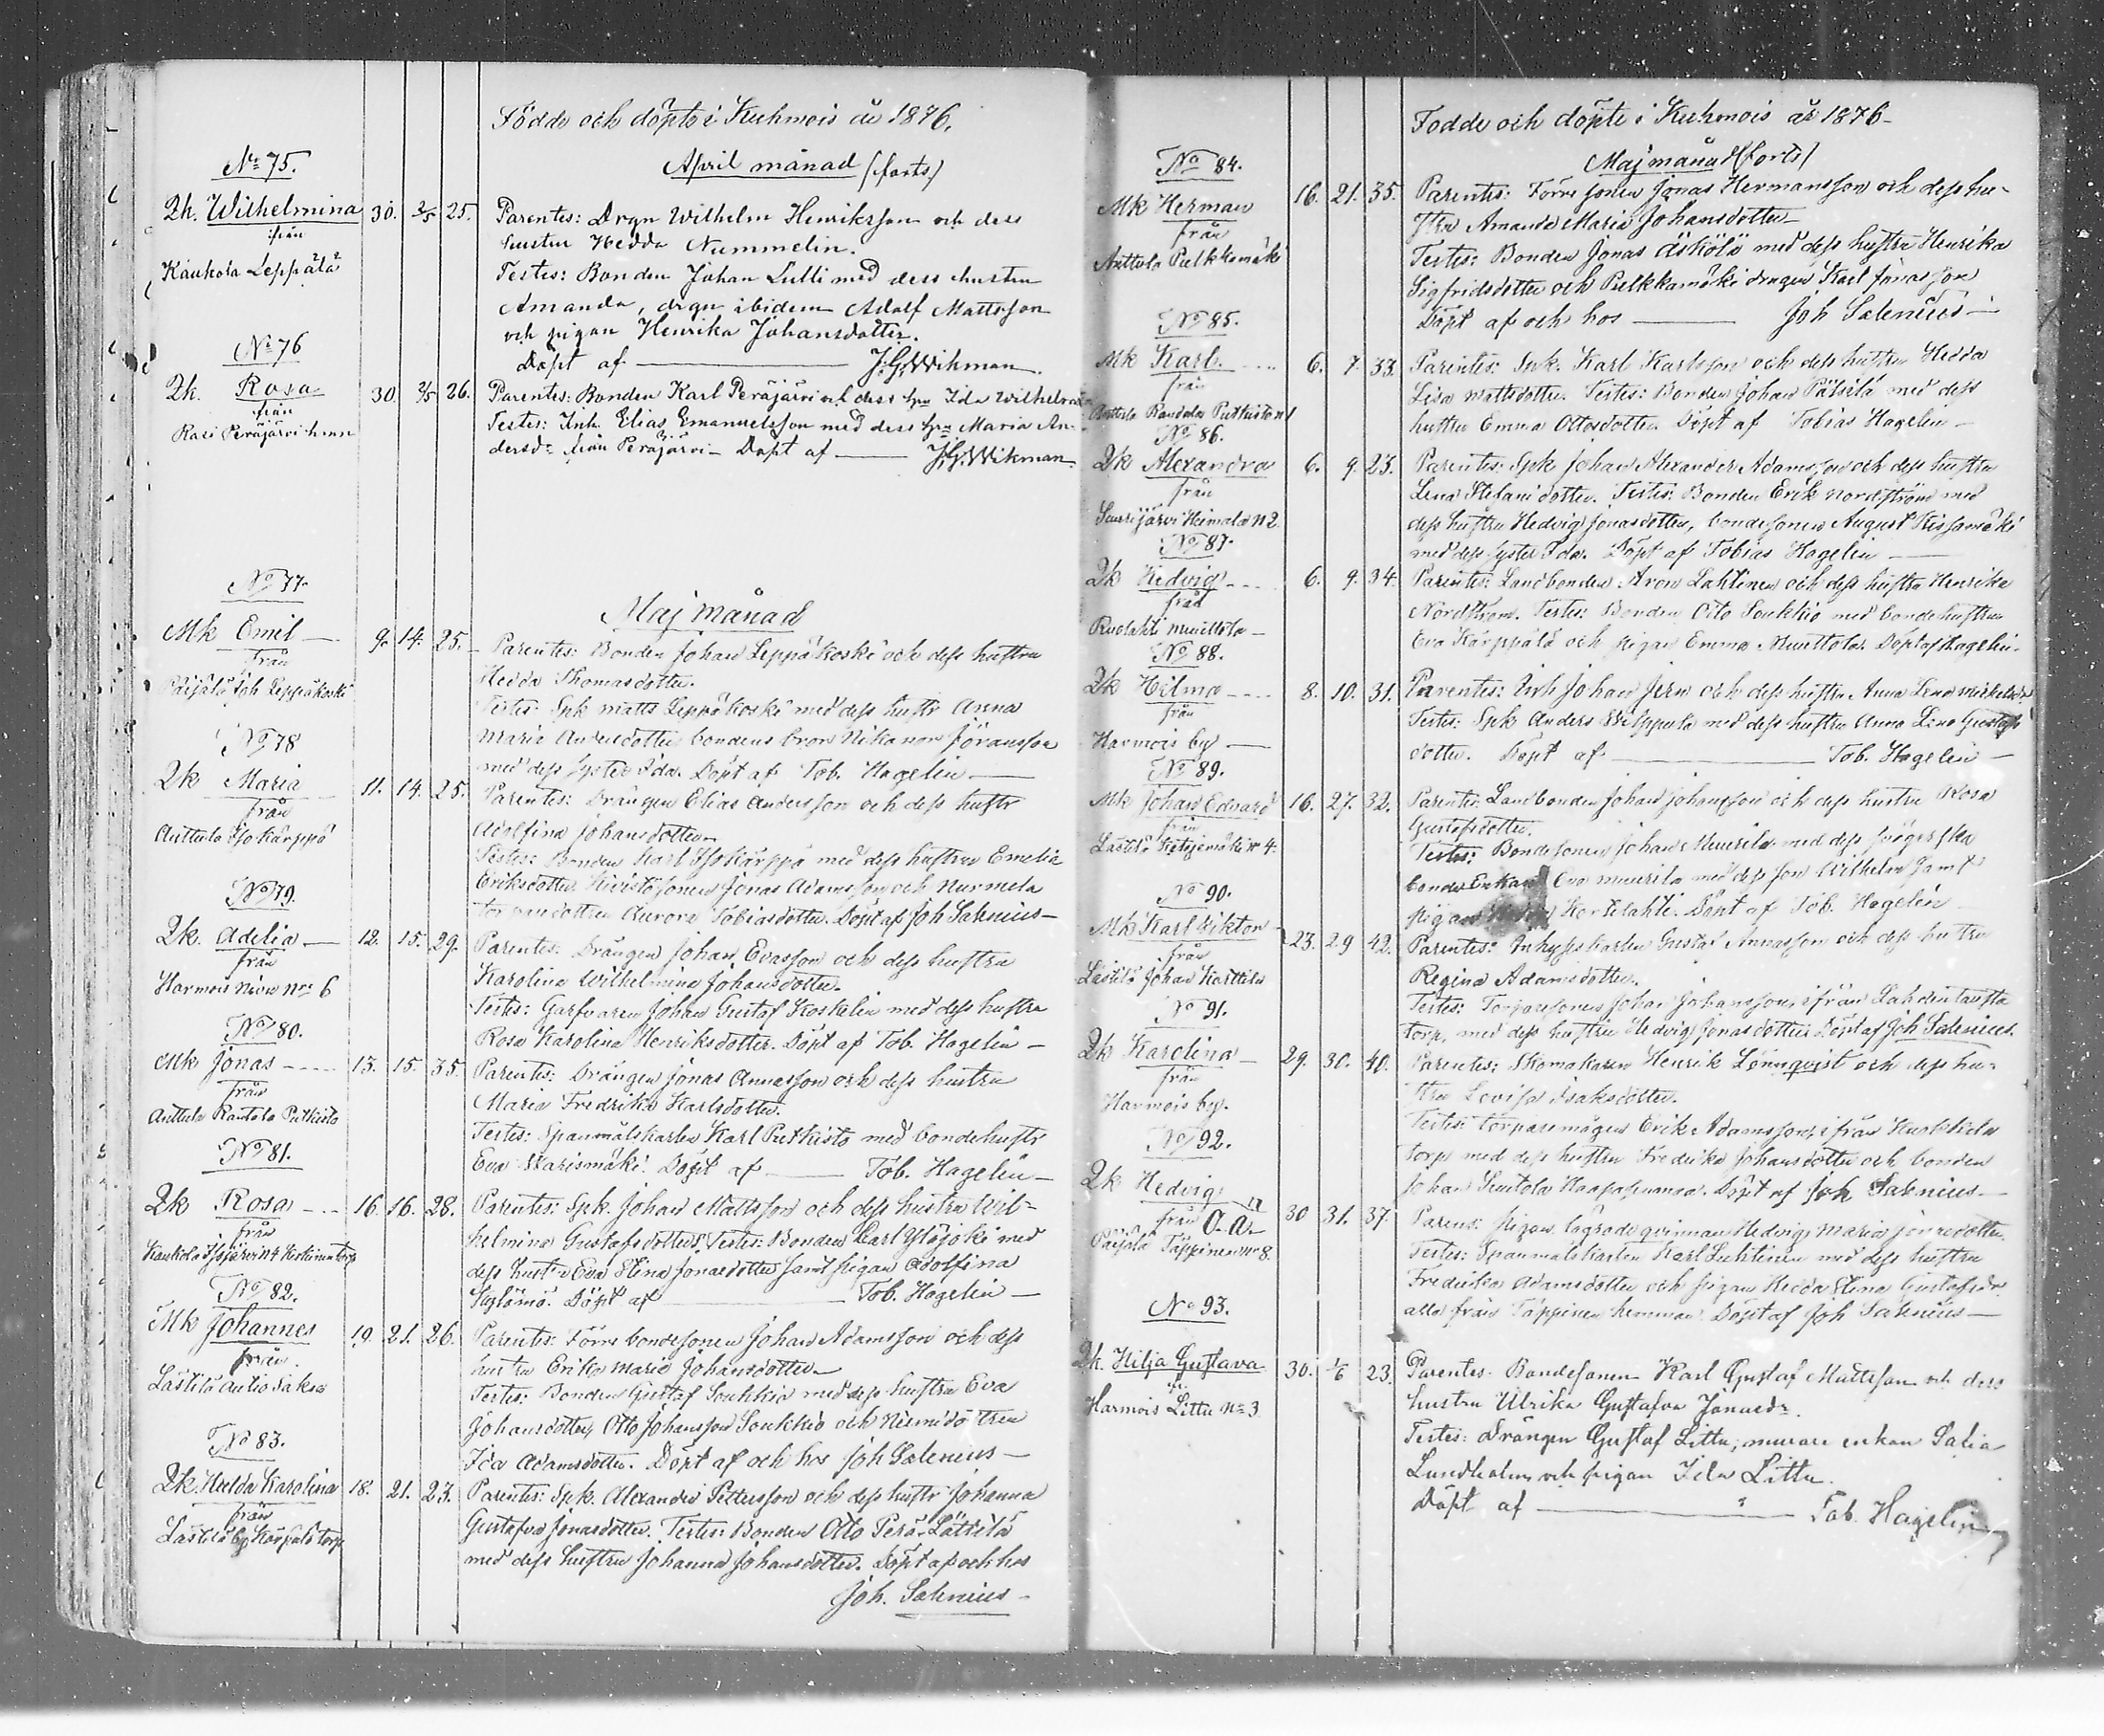 Födde och döpte i Kuhmois år 1876.
April månad (forts.)
No 75.
Qk. Wilhelmina 30. 2/5 25.
från
Kaukola Leppälä
Parentes: Drgn Wilhelm Henriksson och dess
hustru Hedda Nummelin.
Testes: Bonden Johan Lulli med dess hustru
Amanda, drgn ibidem Adolf Mattsson
och pigan Henrika Johansdotter.
Döpt af J.G. Wikman.
No 76
Qk. Rosa 30. 2/5 26.
från
Rasi Peräjärvi hmn
Parentes: Bonden Karl Peräjärvi och dess hru Ida Wilhelms
Testes: Inh. Elias Emanuelsson med dess hru Maria An-
dersdr från Peräjärvi - Döpt af J.G. Wikman.
Maj månad
No 77.
Mk Emil 9. 14. 25.
från
Päijälä Joh Leppäkoski
Parentes: Bonden Johan Leppäkoski och dess hustru
Hedda Thomasdotter.
Testes: Spk Matts Leppäkoski med dess hustr Anna
Maria Andersdotter bondens bror Nikanor Göransson
med dess syster Ida. Döpt af Tob. Hagelin
No 78
Qk Maria 11. 14. 25.
från
Anttula Iso Kärppä
Parentes: Drängen Elias Andersson och dess hustr
Adolfina Johansdotter
Testes: Bonden Karl Iso Kärppä med dess hustru Emelia
Eriksdotter Kivistösonen Jonas Adamsson och Nurmela
torpardottren Aurora Tobiasdotter. Döpt af Joh Salenius-
No 79.
Qk. Adelia 12. 15. 29.
från
Harmois No 6
Parentes: Drängen Johan Evasson och dess hustru
Karolina Wilhelmina Johansdotter.
Testes: Garfvaren Johan Gustaf Koskelin med dess hustru
Rosa Karolina Henriksdotter. Döpt af Tob. Hagelin -
No 80.
Mk Jonas 13. 15. 35.
från
Anttula Rautala Putkisto
Parentes: Drängen Jonas Annasson och dess hustru
Maria Fredrika Karlsdotter.
Testes: Spanmålskarlen Karl Putkisto med bondehustr
Eva Harismäki. Döpt af Tob. Hagelin -
No 81.
Qk Rosa 16. 16. 28.
från
Kaukola
Parentes: Spk. Johan Mattsson och dess hustru Wil-
helmina Gustafsdotter. Testes: Bonden Carl Ylöjoki med
dess hustru Eva Stina Jonasdotter samt pigan Adolfina
Döpt af Tob. Hagelin -
No 82.
Mk Johannes 19. 21. 26.
från.
Lästilä Autio Saksa
Parentes: Förre bondesonen Johan Adamsson och dess
hustru Erika Maria Johansdotter
Testes: Bonden Gustaf Soukkio med dess hustru Eva
Johansdotter, Otto Johansson Soukkio och Niemidottren
Ida Adamsdotter. Döpt af och hos Joh Salenius -
No 83.
Qk. Hedda Karolina 18. 21. 23.
från
Lästilä by Kärpälä torp
Parentes: Spk. Alexander Pettersson och dess hustr Johanna
Gustafva Jonasdotter. Testes: Bonden Otto Perä-Lättilä
med dess hustru Johanna Johansdotter. Döpt af och hos
Joh. Salenius -
Födde och döpte i Kuhmois år 1876-
Maj månad (forts)
No 84.
Mk Herman 16. 21. 35.
från
Anttula Pulkkamäki
Parentes: Förre sonen Jonas Hermansson och dess hu-
stru Amanda Maria Johansdotter
Testes: Bonden Jonas Äskölä med dess hustru Henrika
Sigfridsdotter och Pulkkamäki drngen Karl Jonasson
Döpt af och hos Joh Salenius -
No 85.
Mk Karl 6. 7. 33.
från
Anttula Rautala Putkisto
Parentes: Spk. Karl Karlsson och dess hustru Hedda
Lisa Mattsdotter. Testes: Bonden Johan Pätsilä med dess
hustru Emma Ottosdotter Döpt af Tobias Hagelin -
No 86.
Qk Alexandra 6. 9. 23.
från
Heimala N 2.
Parentes: Spk Johan Alexander Adamsson och dess hustru
Lena Stefansdotter. Testes: Bonden Erik Nordström med
dess hustru Hedvig Jonasdotter, bondesonen August Kissamäki
med dess syster Ida. Döpt af Tobias Hagelin
No 87.
Qk Hedvig 6. 9. 34.
från
Ruolahti Muuttola -
Parentes: Landbonden Aron Lahtinen och dess hustru Henrika
Nordström. Testes: Bonden Otto Soukkio med bondehustrun
Eva Kärppälä och pigan Emma Muuttola. Döpt af Hagelin.
No 88.
Qk Hilma 8. 10. 31.
från
Harmois by
Parentes: Inh Johan Jern och dess hustru Anna Lena Mickelsdr
Testes: Spk Anders med dess hustru Anna Lena Gustafs
dotter. Döpt af Tob. Hagelin -
No 89.
Mk Johan Edvard 16. 27. 32.
från
Lästilä Ketjemäki N 4.
Parentes: Landbonden Johan Johansson och dess hustru Rosa
Gustafsdotter.
Testes: Bondesonen Johan Muurila med dess svägerska
bonde Enkan Eva Muurila med dess son Wilhelm samt
pigan Kortelahti. Döpt af Tob. Hagelin
No 90.
Mk Karl Viktor 23. 29 42.
från
Lästilä Johan Karttila
Parentes: Inhyseskarlen Gustaf Annasson och dess hustru
Regina Adamsdotter.
Testes: Torparesonen Johan Johansson, ifrån Lahdentausta
torp, med dess hustru Hedvig Jonasdotter Döpt af Joh Salenius.
No 91.
Qk Karolina 29. 30. 40.
från
Harmois by.
Parentes: Skomakaren Henrik Lönnqvist och dess hu-
stru Lovisa Isaksdotter.
Testes: torparemågen Erik Adamsson, ifrån
torp med dess hustru Fredrika Johansdotter och bonden
Johan Döpt af Joh Salenius-
No 92.
Qk Hedvig 30 31. 37.
från O.ä.
Päijälä Täppinen No 8.
Parens: pigan lägrade qvinnan Hedvig Maria Jonasdotter.
Testes: Spanmålskarlen Karl Luhtinen med dess hustru
Fredrika Adamsdotter och pigan Hedda Stina Gustafsdr
alla från Täppinen hemman. Döpt af Joh Salenius -
No 93.
Qk. Hilja Gustava 30. 1/6 23.
fr.
Harmois Littu No 3
Parentes: Bondesonen Karl Gustaf Mattsson och dess
hustru Ulrika Gustafva Jonasdr.
Testes: Drängen Gustaf Littu, murare enkan Salia
Lundholm och pigan Ida Littu.
Döpt af Tob. Hagelin